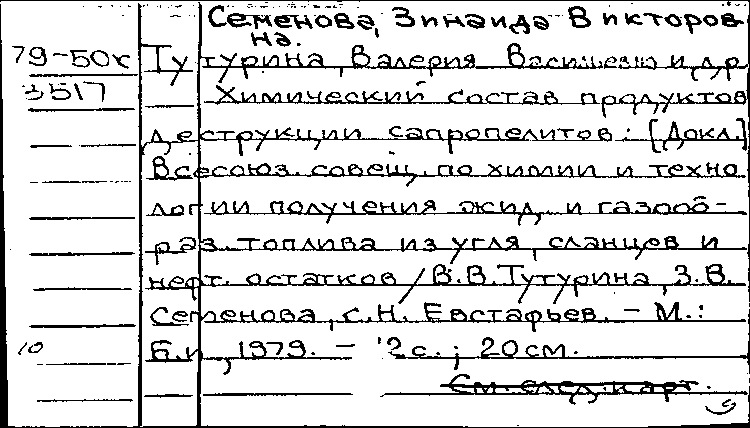 Семенова, Зинаида Викторов-
на.
79-50к Тутурина, Валерия Васильевна и др.
3517 Химический состав продуктов
деструкции сапропелитов: [Докл.]
Всесоюз. совещ. по химии и техно
логии получения жид. и газооб-
раз. топлива из угля, сланцев и
нефт. остатков / В.В. Тутурина, З.В.
Семенова, С.Н. Евстафьев. - М.:
10 Б.и., 1979. - 12 с.; 20 см.
См. след. карт.